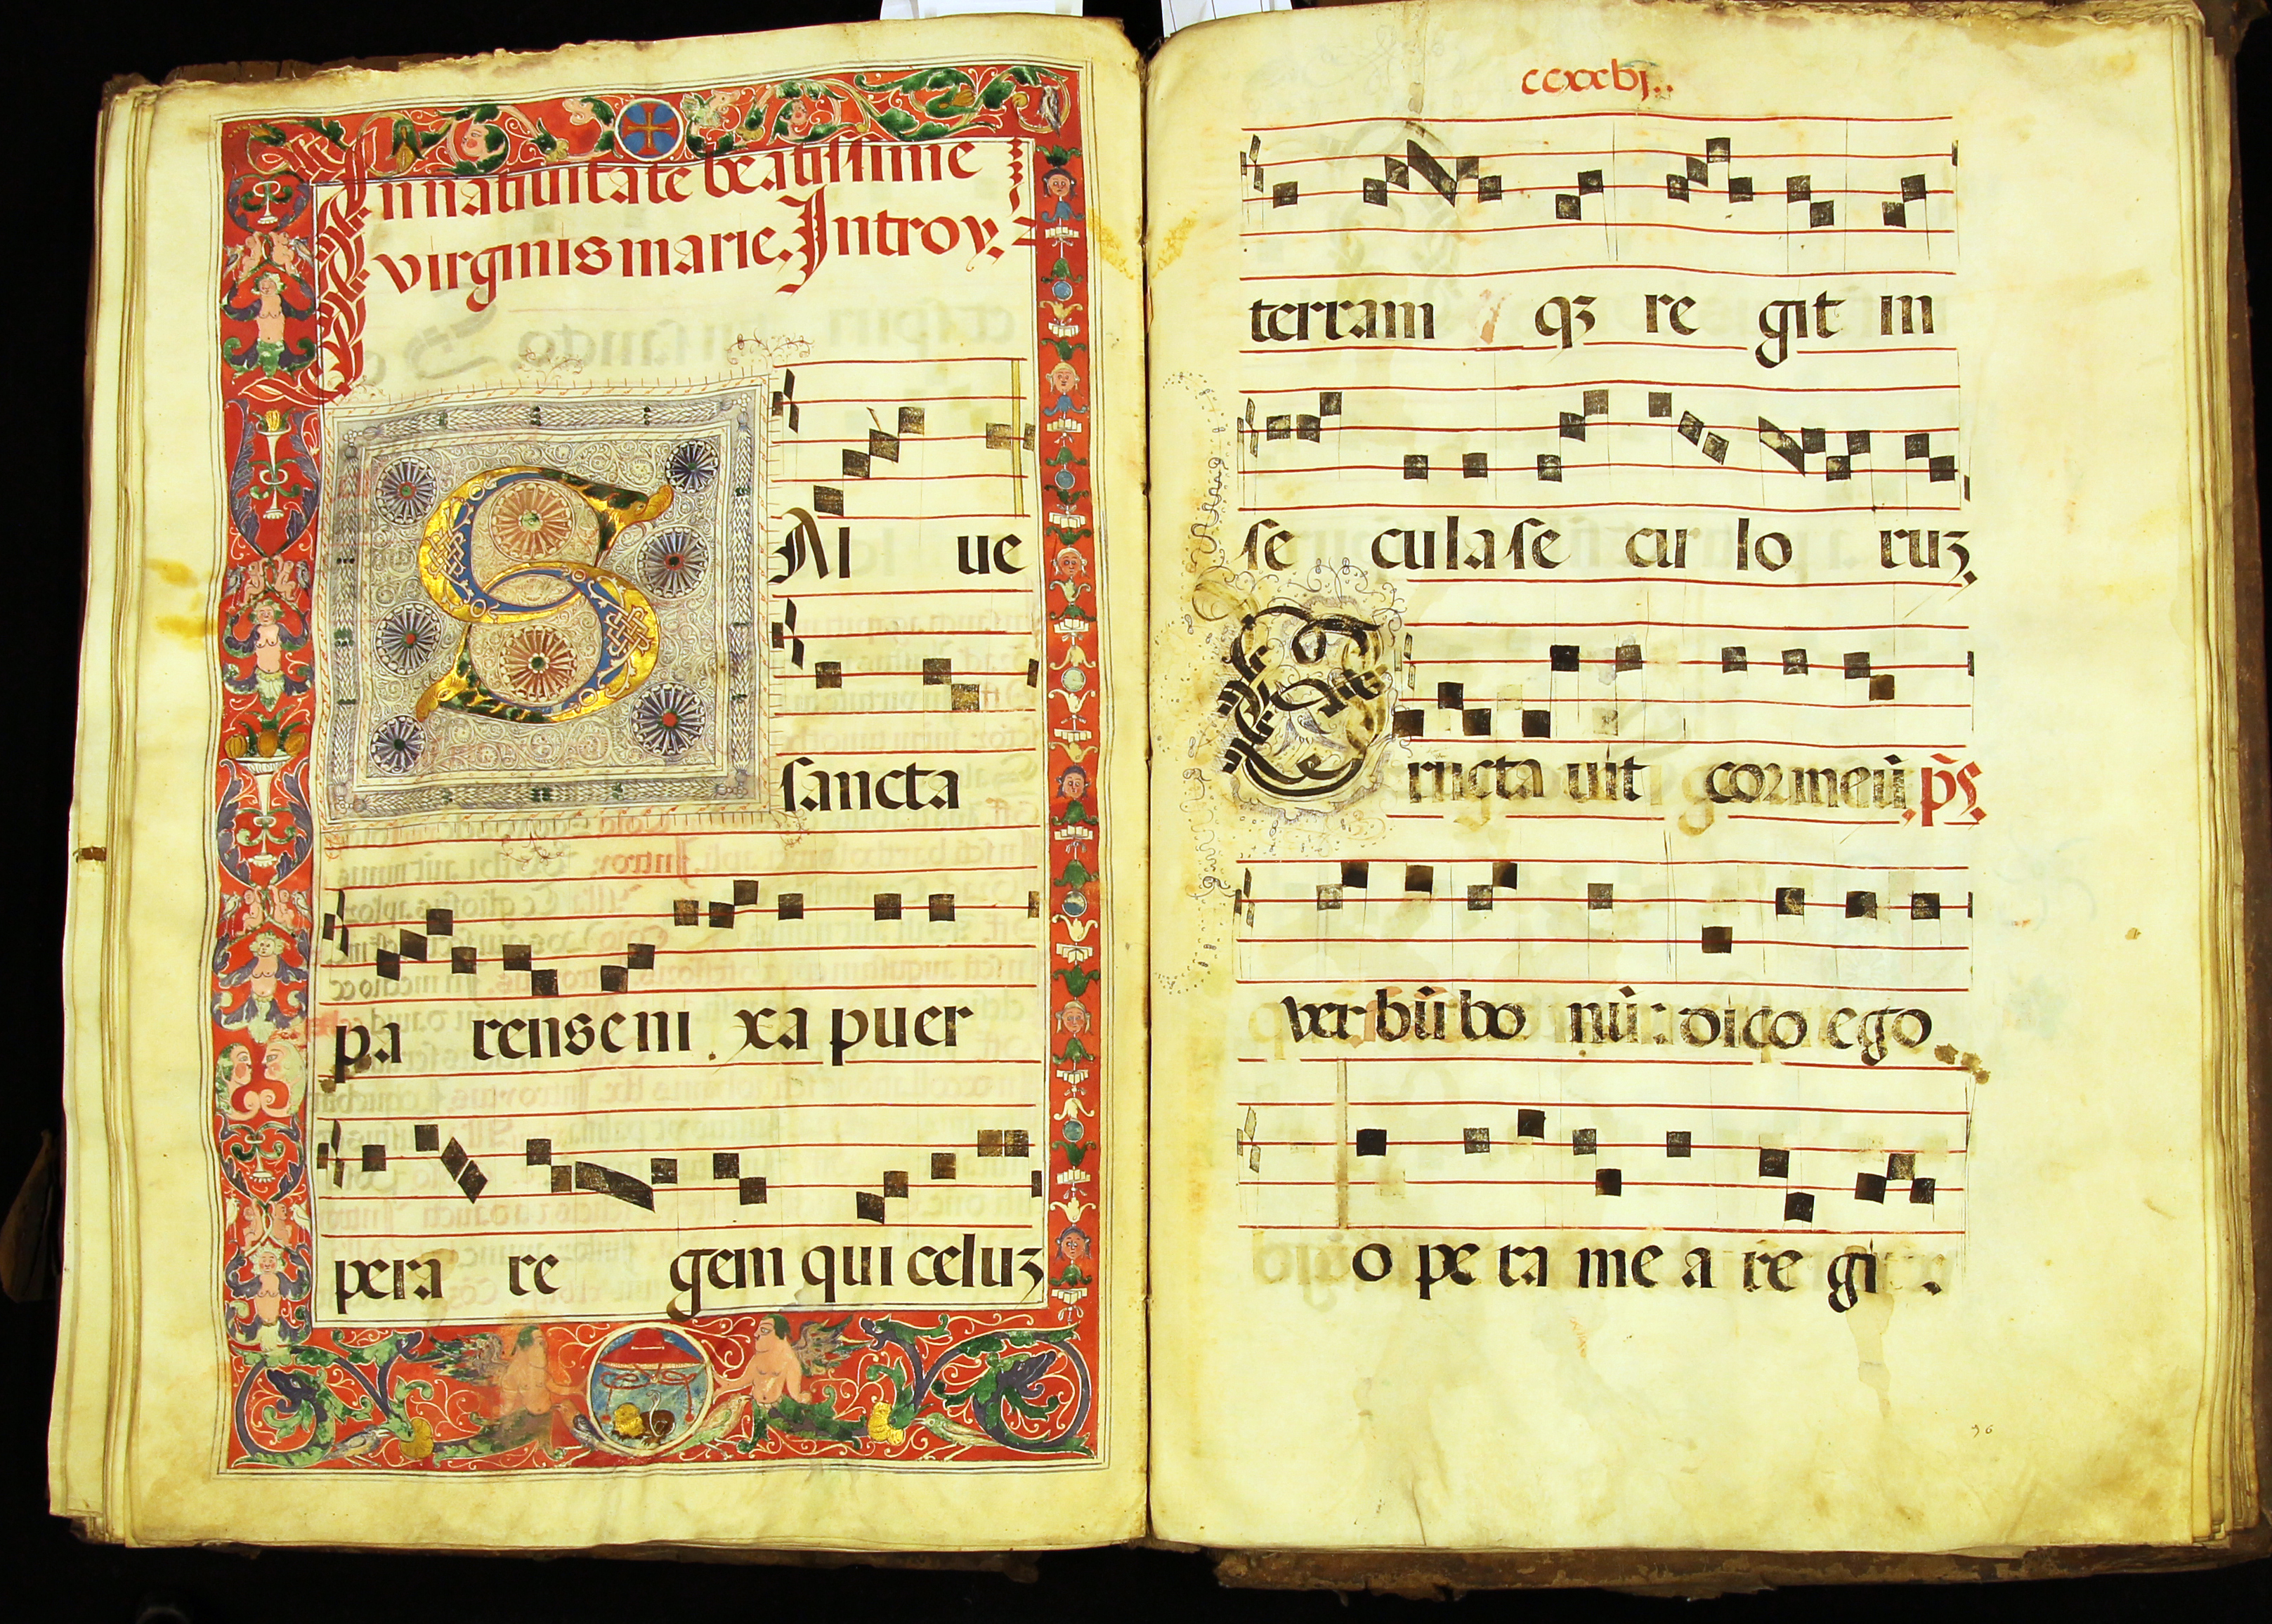 In natiuitate beatissime
virginis marie. Introy.
SAl ue
sancta
pa rens eni xa puer
pera re gem qui celuz
ccxxbj..
terram qꝫ re git in
se cula se cu lo ruꝫ.
Eructa uit cor meū p̄s.
ver bū bo nū: dico ego
o pe ra me a re gi .
96